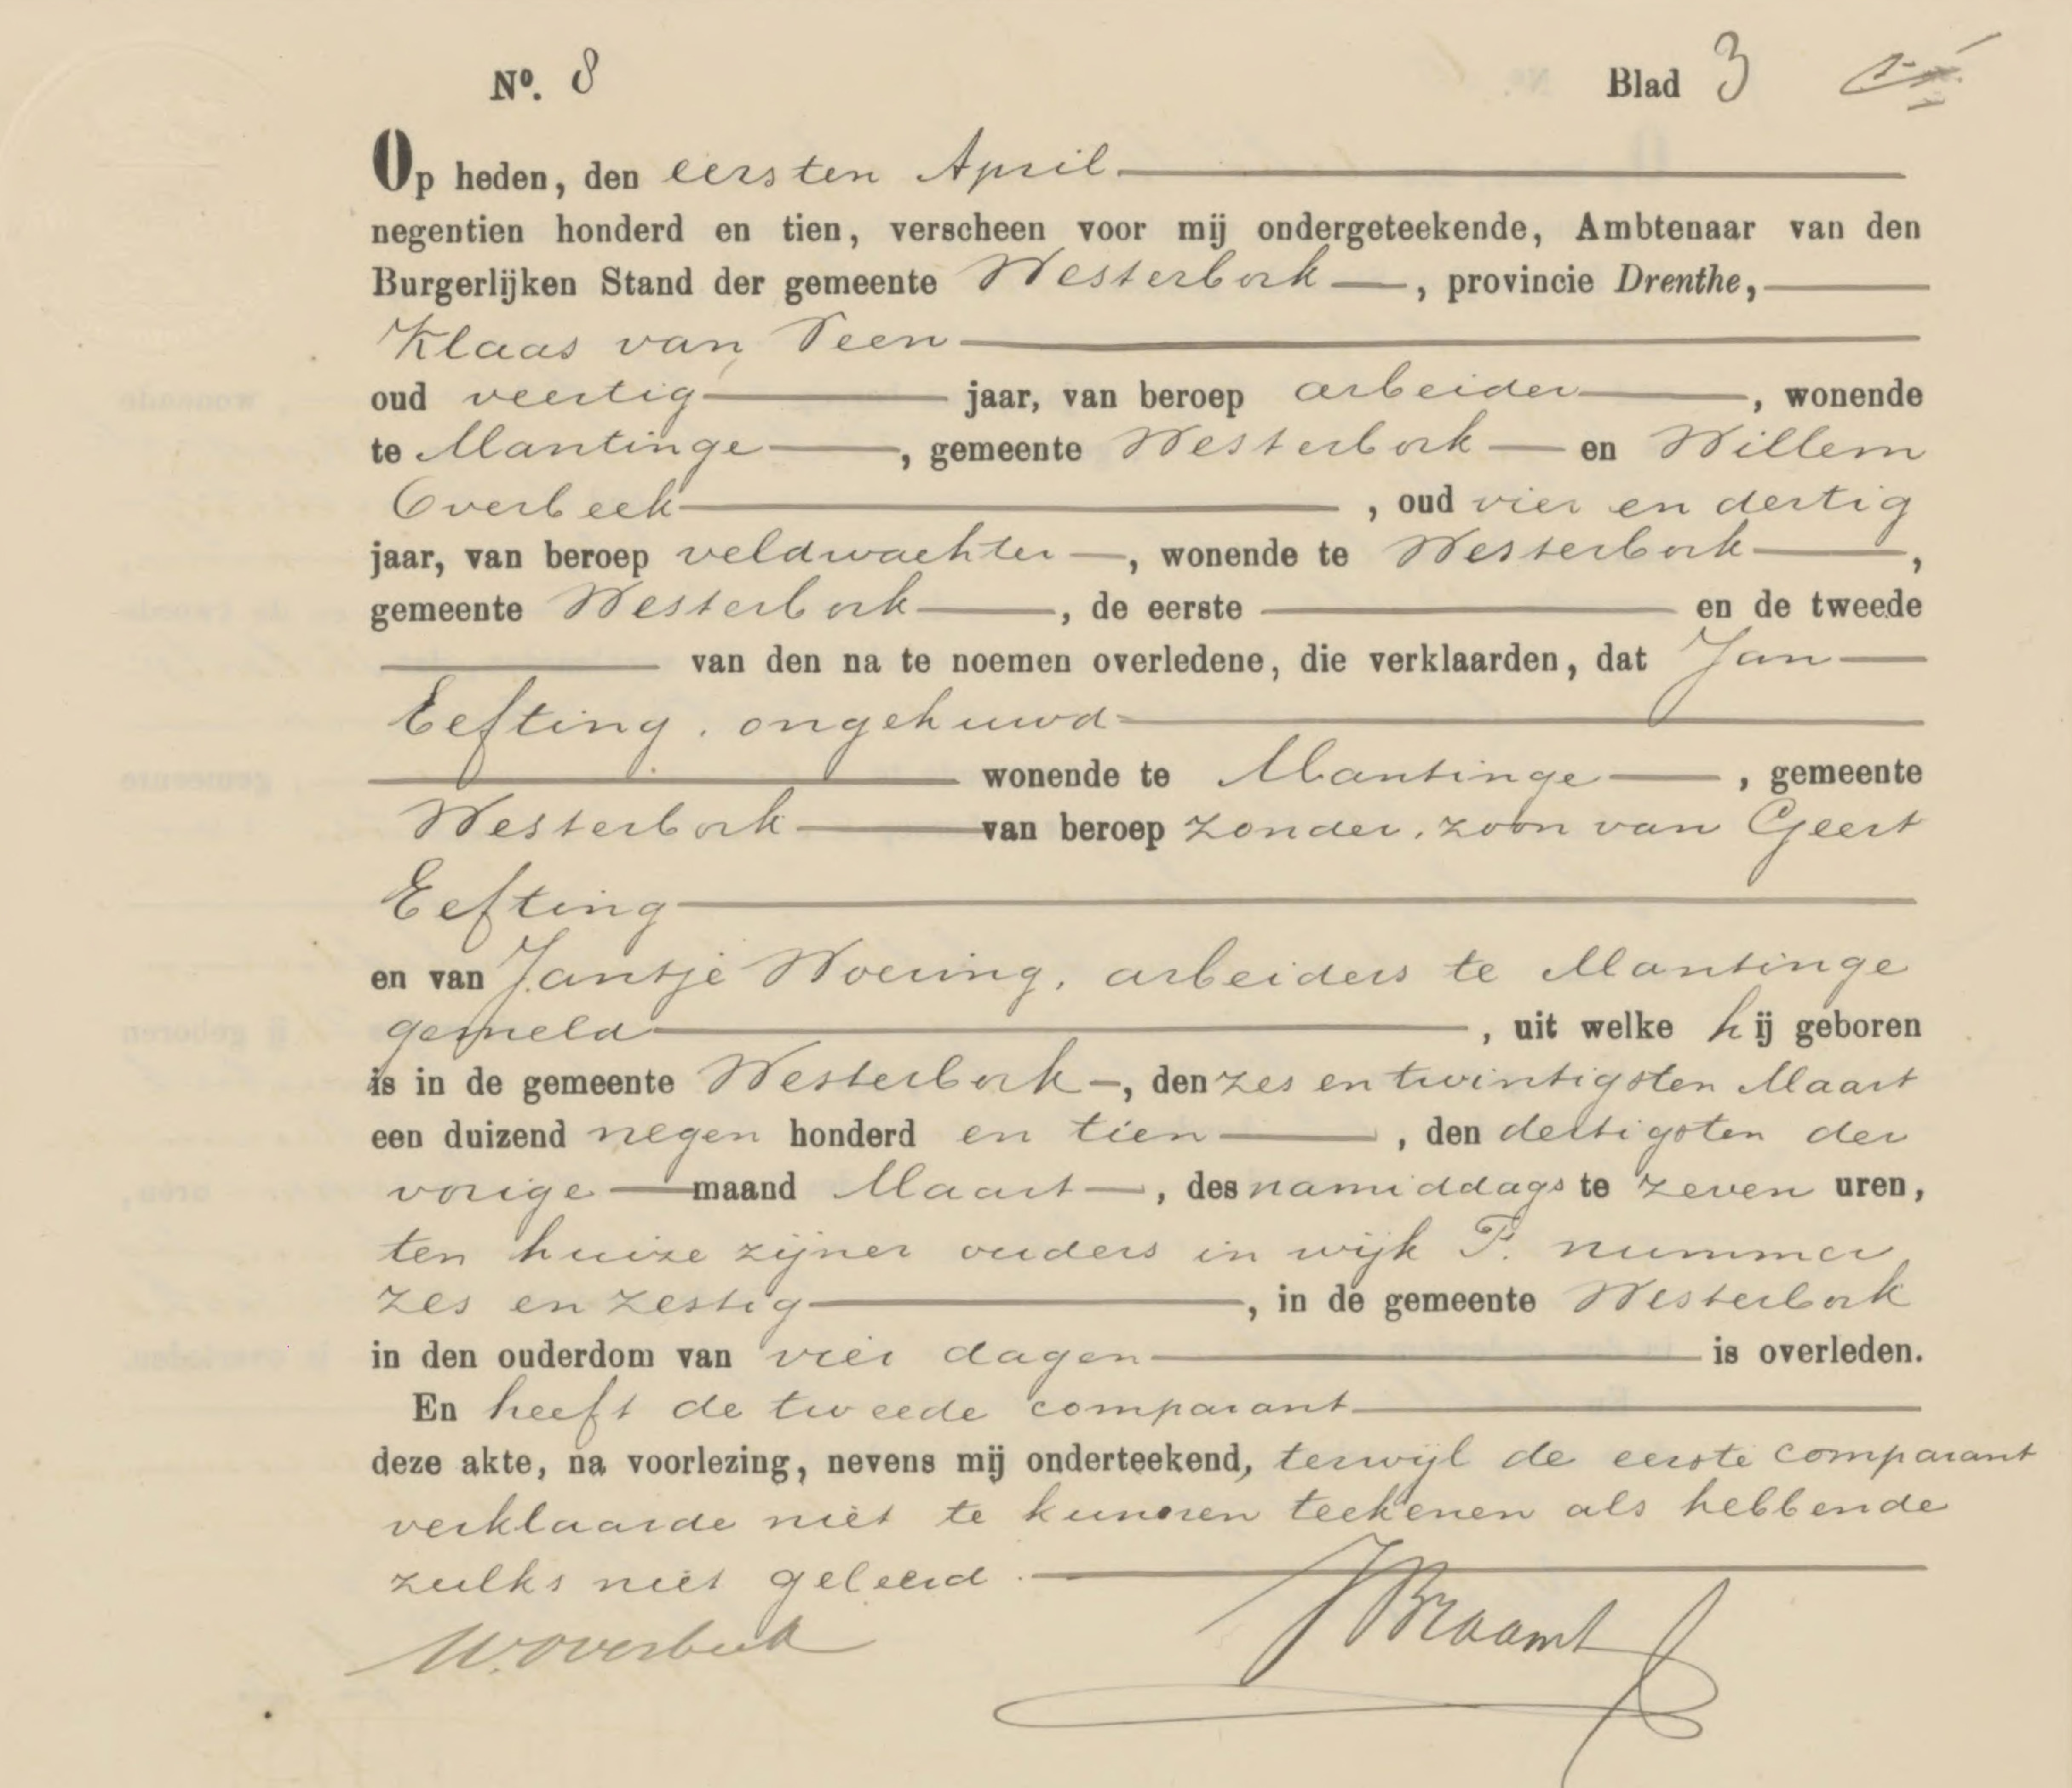 No. 8 Blad 3
Op heden, den eersten April
negentien honderd en tien, verscheen voor mij ondergeteekende, Ambtenaar van den
Burgerlijken Stand der gemeente Westerbork, provincie Drenthe,
Klaas van Veen
oud veertig jaar, van beroep arbeider, wonende
te Mantinge, gemeente Westerbork en Willem
Overbeek, oud vier en dertig
jaar, van beroep veldwachter, wonende te Westerbork,
gemeente Westerbork, de eerste en de tweede
van den na te noemen overledene, die verklaarden, dat Jan
Eefting, ongehuwd
wonende te Mantinge, gemeente
Westerbork van beroep zonder, zoon van Geert
Eefting
en van Jantje Woering, arbeiders te Mantinge
gemeld, uit welke hij geboren
is in de gemeente Westerbork, den zes en twintigsten Maart
een duizend negen honderd en tien, den dertigsten der
vorige maand Maart, des namiddags te zeven uren,
ten huize zijner ouders in wijk F. nummer
zes en zestig, in de gemeente Westerbork
in den ouderdom van vier dagen is overleden.
En heeft de tweede comparant
deze akte, na voorlezing, nevens mij onderteekend, terwijl de eerste comparant
verklaarde niet te kunnen teekenen als hebbende
zulks niet geleerd.
W. Overbeek